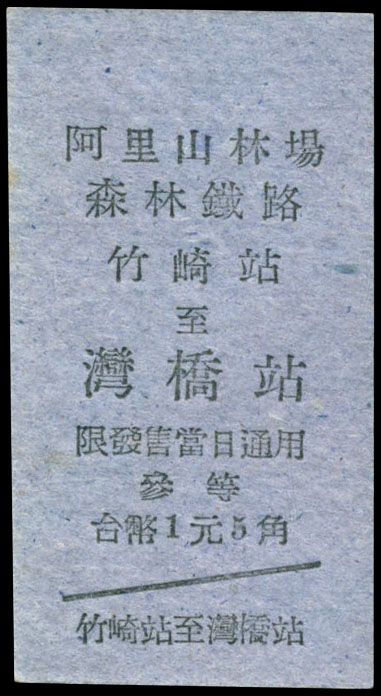 阿里山林場
森林鐵路
竹崎站
至
灣橋站
限發售當日通用
參等
台幣1元5角
竹崎站至灣橋站